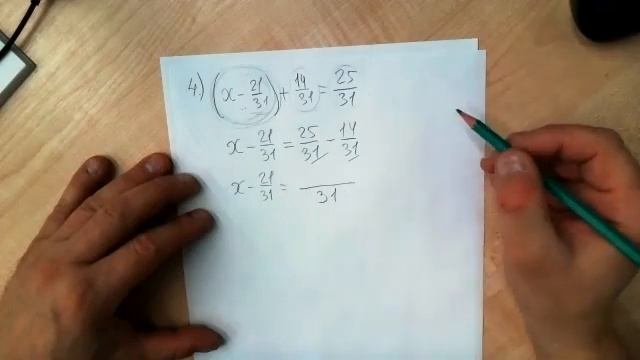 4) (x - 21/31) + 14/31 = 25/31
x - 21/31 = 25/31 - 14/31
x - 21/31 = /31